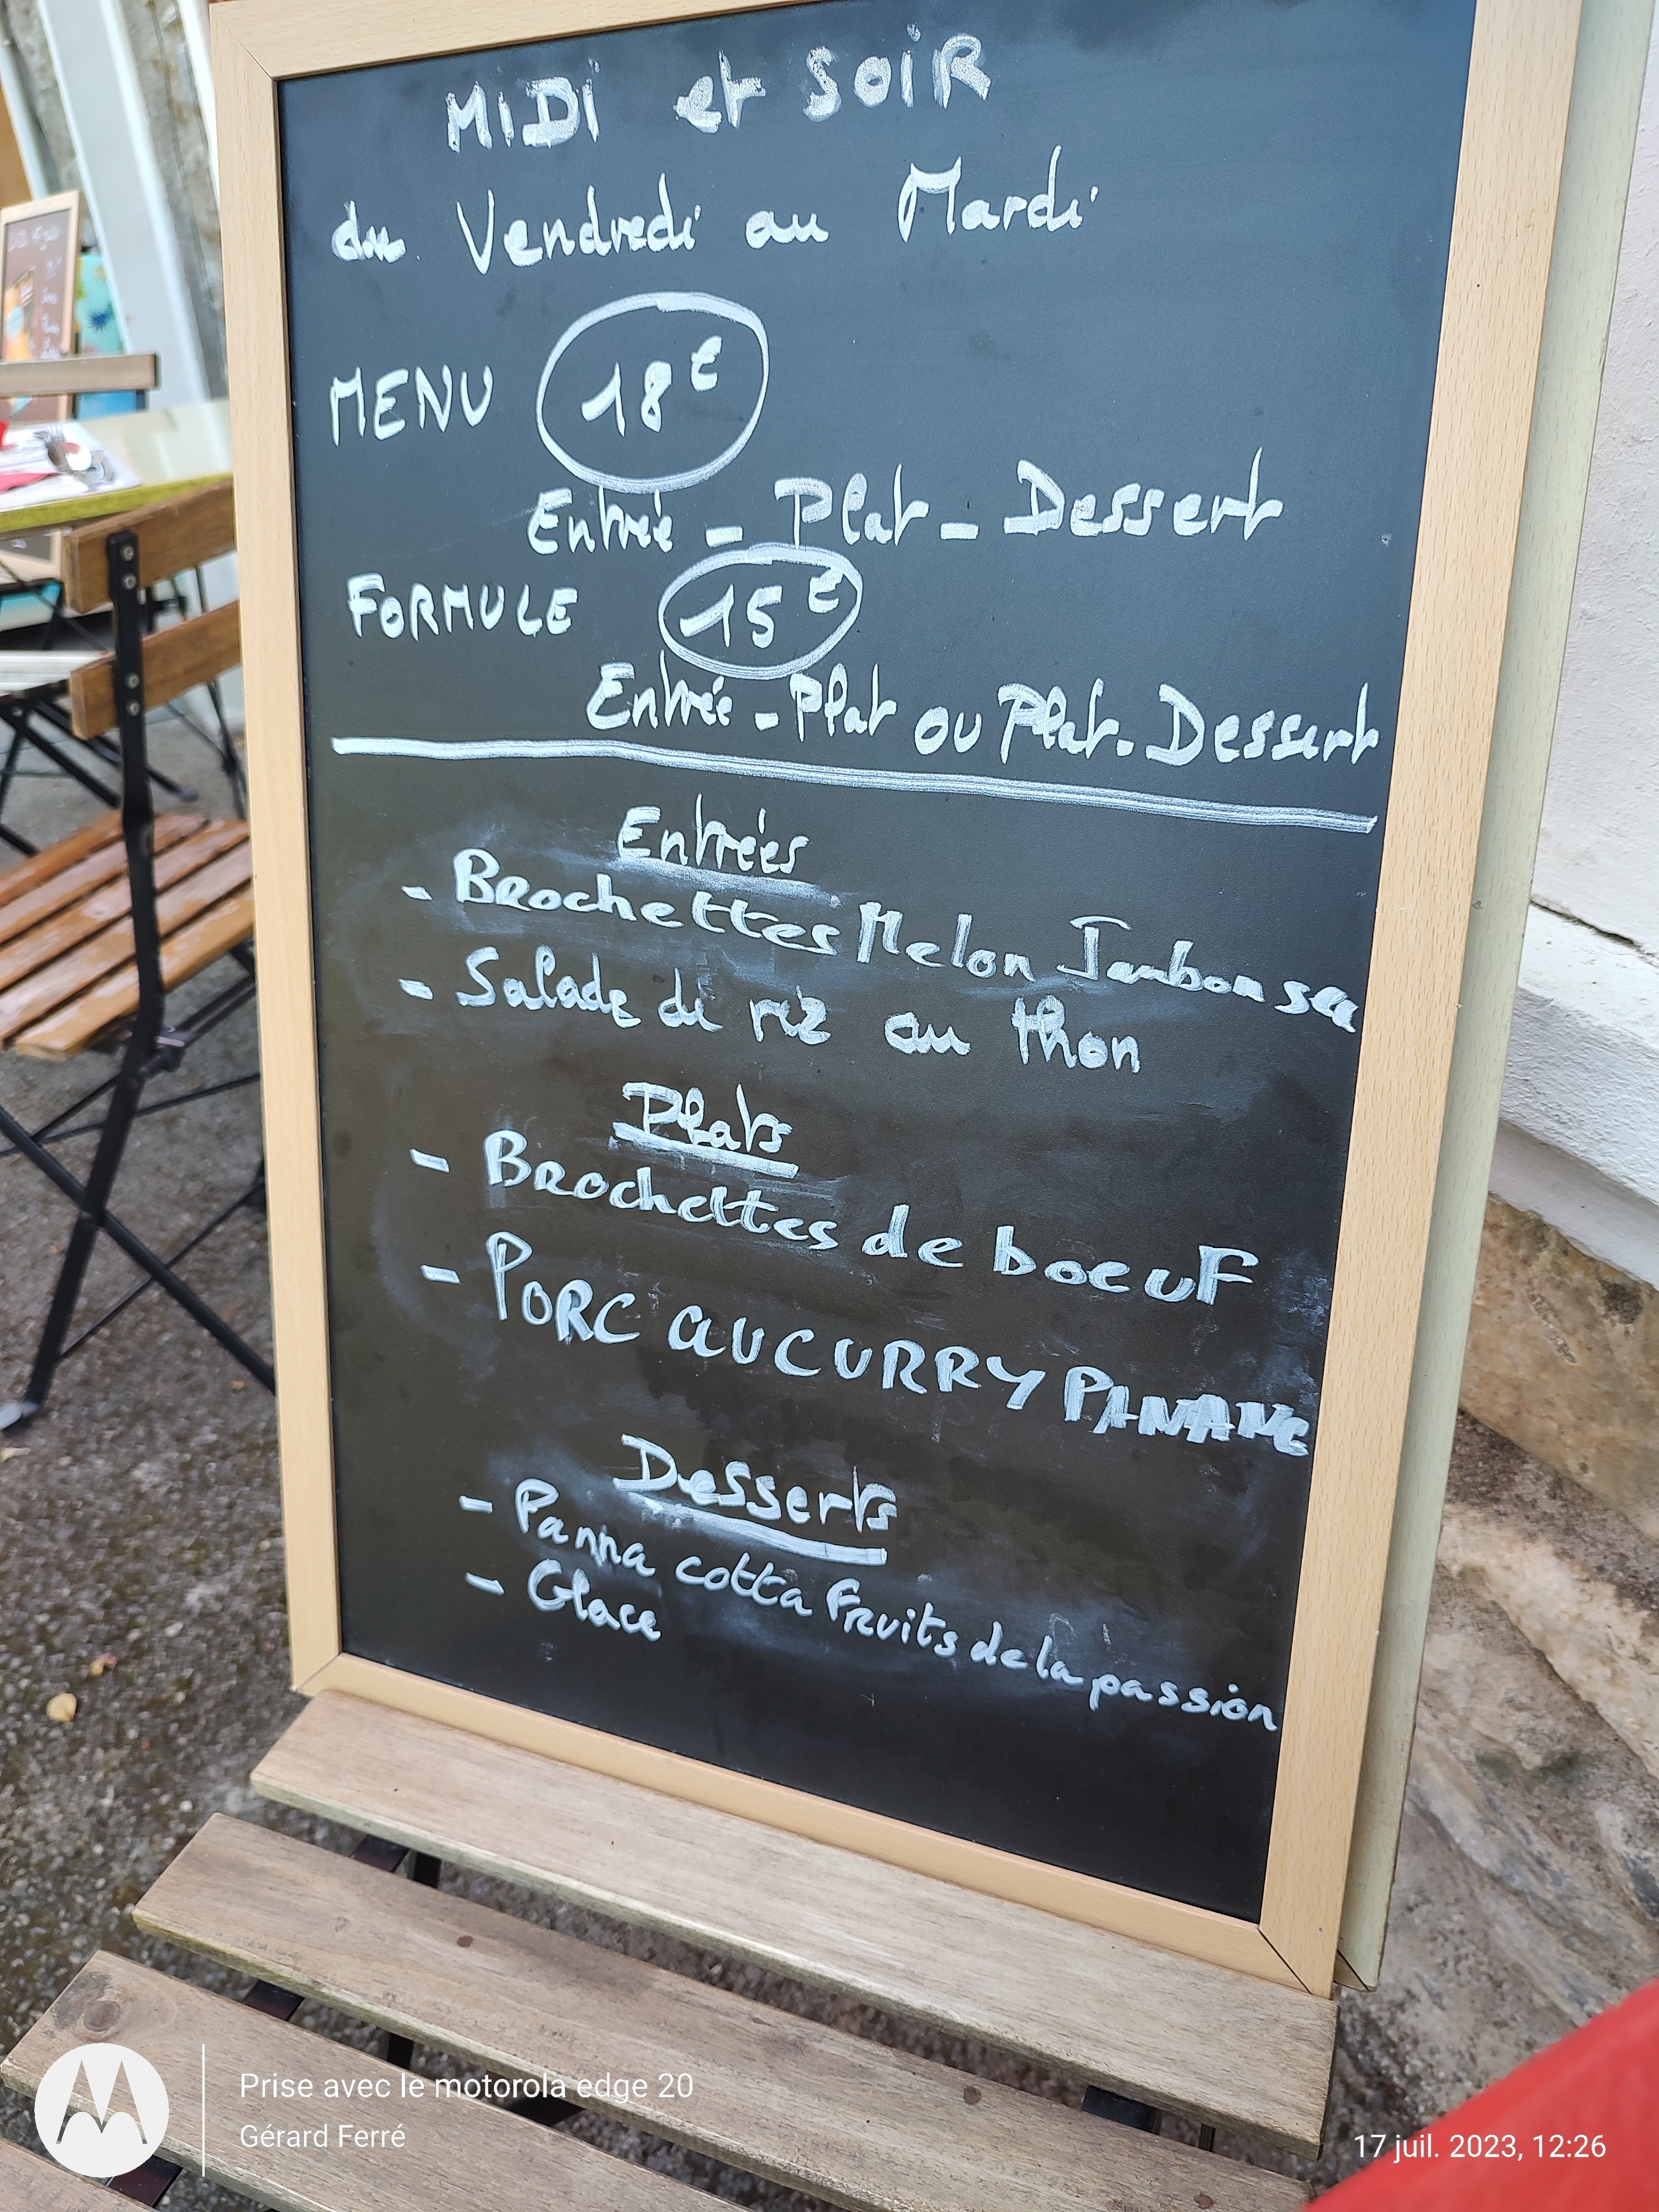 MiDi et SOiR
du Vendredi au Mardi
MENU 18€
Entrée - Plat - Dessert
FORMULE 15€
Entrée - Plat ou Plat. Dessert
Entrées
- Brochettes Melon Jambon sec
- Salade de riz au thon
Plats
- Brochettes de boeuf
- PORC au CURRY PANANG
Desserts
- Panna cotta fruits de la passion
- Glace
Prise avec le motorola edge 20
Gérard Ferré
17 juil. 2023, 12:26